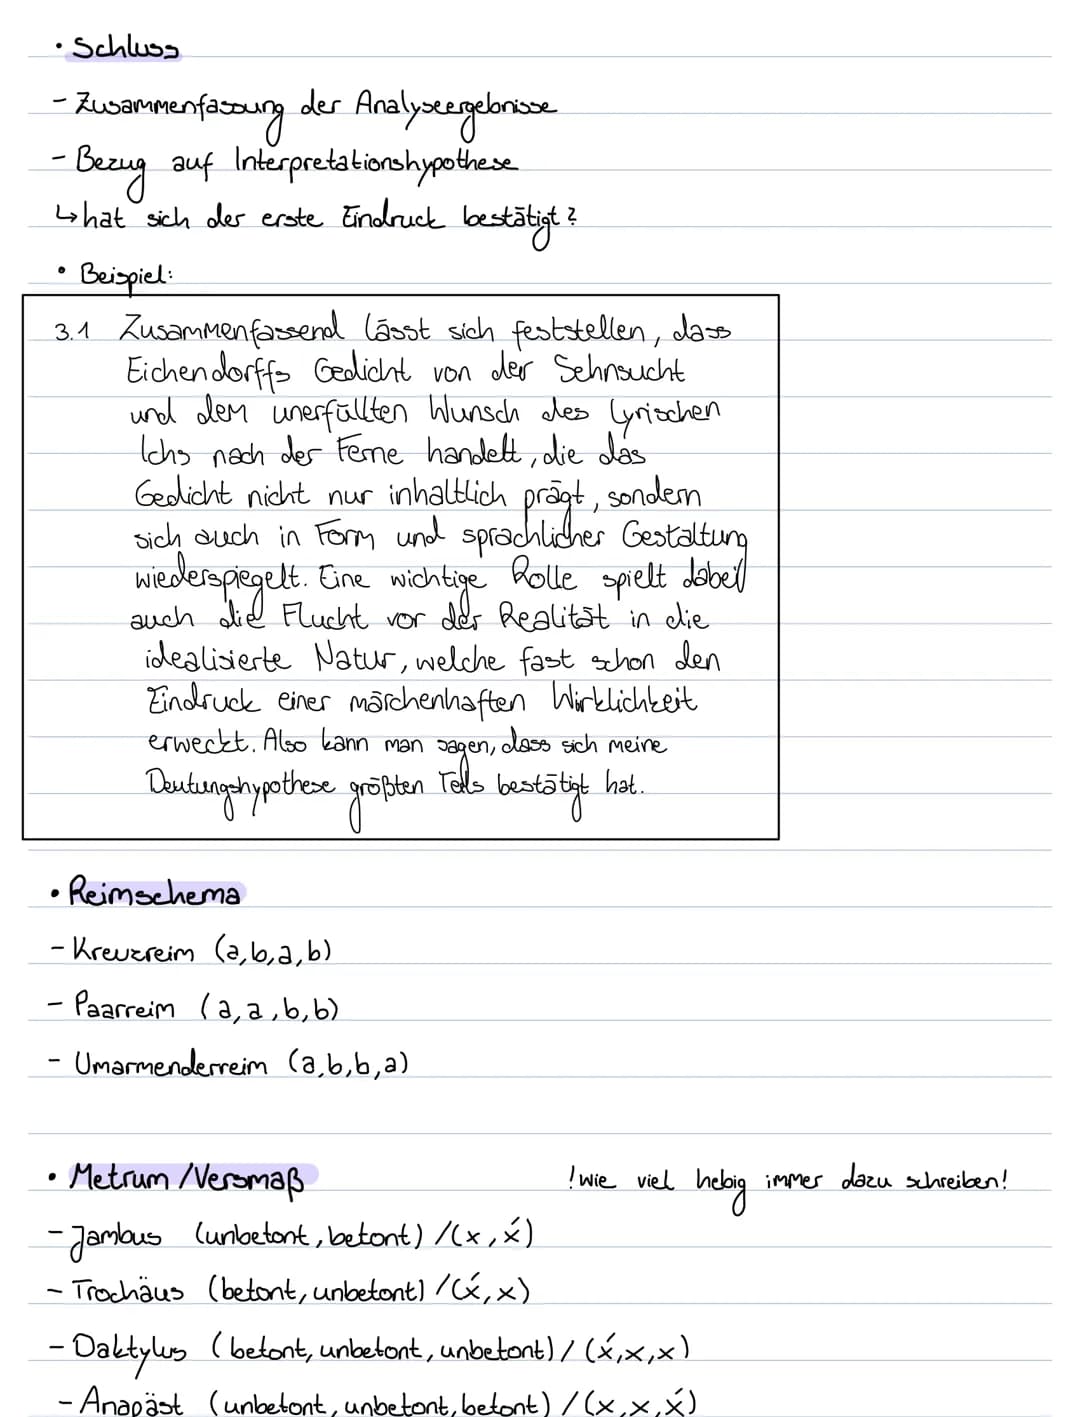 • Schluss
- Zusammenfassung der Analyseergebnisse
- Bezug auf Interpretationshypothese
↳ hat sich der erste Eindruck bestätigt?
• Beispiel:
3.1 Zusammenfassend lässt sich feststellen, dass
Eichendorffs Gedicht von der Sehnsucht
und dem unerfüllten Wunsch des lyrischen
Ichs nach der Ferne handelt, die das
Gedicht nicht nur inhaltlich prägt, sondern
sich auch in Form und sprachlicher Gestaltung
wiederspiegelt. Eine wichtige Rolle spielt dabei
auch die Flucht vor der Realität in die
idealisierte Natur, welche fast schon den
Eindruck einer märchenhaften Wirklichkeit
erweckt. Also kann man sagen, dass sich meine
Deutungshypothese größten Teils bestätigt hat.
• Reimschema
- Kreuzreim (a,b,a,b)
- Paarreim (a,a,b,b)
- Umarmenderreim (a,b,b,a)
• Metrum/Versmaß !wie viel hebig immer dazu schreiben!
- Jambus (unbetont, betont) /(x,x́)
- Trochäus (betont, unbetont) /(x́,x)
- Daktylus (betont, unbetont, unbetont) / (x́,x,x)
- Anapäst (unbetont, unbetont, betont) /(x,x,x́)